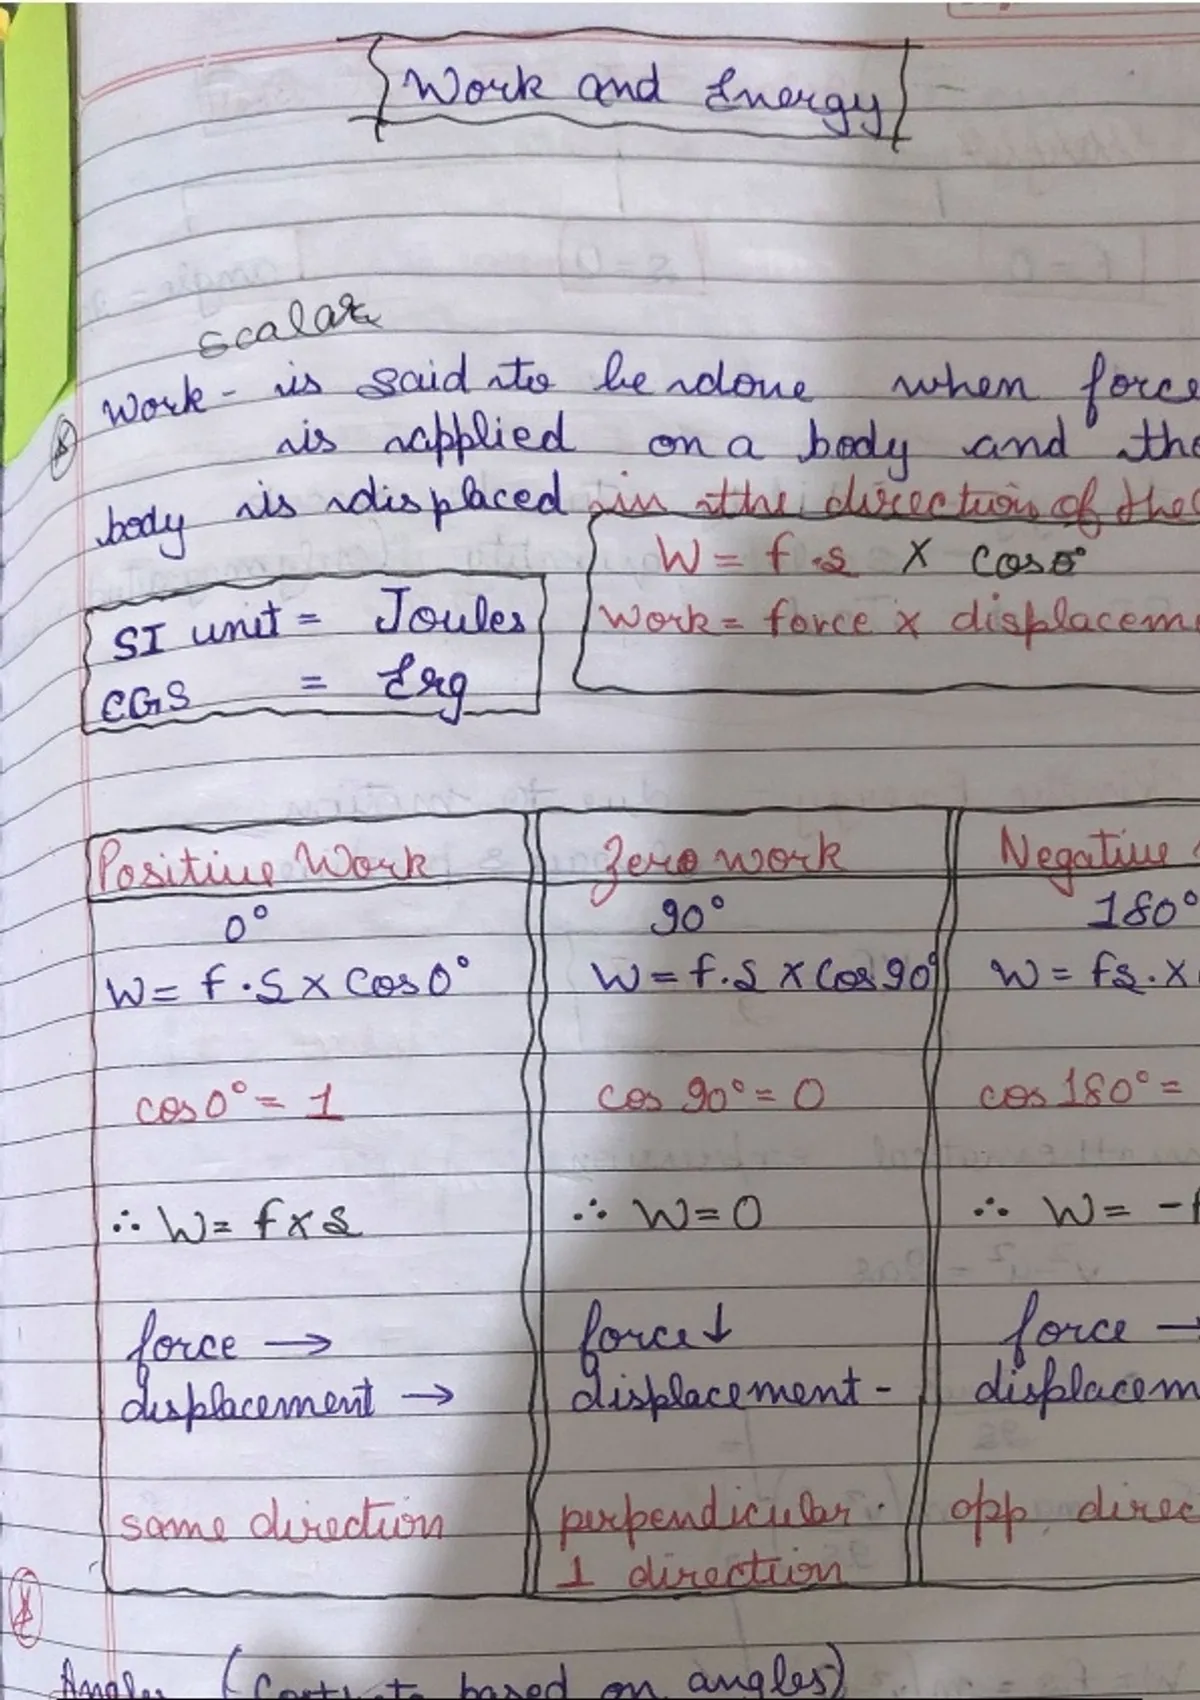 Work and Energy
scalar
Work - is said to be done when force
is applied on a body and the
body is displaced in the direction of the
W = f . s × Cos θ°
SI unit = Joules
work = force × displacem
CGS = Erg
Positive Work Zero work Negative
0° 90° 180°
W = f . S × Cos 0° W = f . s × Cos 90° W = fs . ×
cos 0° = 1 cos 90° = 0 cos 180° =
∴ W = f × s ∴ W = 0 ∴ W = -f
force → force ↓ force →
displacement → displacement - displacem
same direction perpendicular . opp direc
1 direction
Angles ( based on angles)